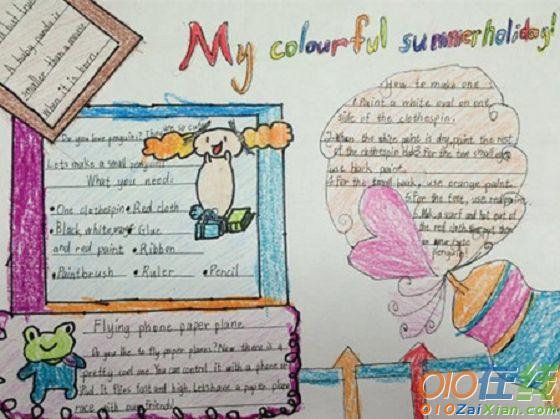 My colourful summer holiday!
but true
A baby panda is
smaller than a mouse
When it is born.
Do you love penguins? They are so cute
Let's make a small penguin!
What you need:
•One clothespin •Red cloth
•Black white •Glue
and red paint •Ribbon
•Paintbrush •Ruler •Pencil
Flying phone paper plane
Do you like to fly paper planes? Now there is a
pretty cool one. You can control it with a phone or
Pad. It flies fast and high. Let's have a paper plane
race with our friends!
How to make one:
1.Paint a white oval on one
side of the clothespin.
2.When the white paint is dry, paint the rest
of the clothespin
use back paint.
4.For the small back, use orange paint.
5.For the use red paint
6. a scarf and hat out of
the red cloth put them
on your
penguin!
010在线
010ZaiXian.com